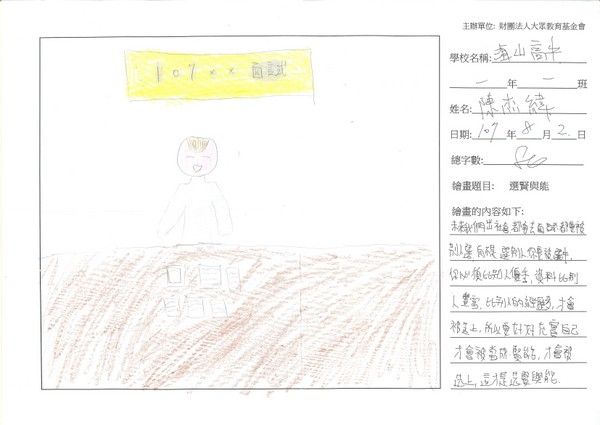 107xx面試
主辦單位: 財團法人大眾教育基金會
學校名稱: 海山高中
一 年 一 班
姓名: 陳杰緯
日期: 107 年 8 月 2 日
總字數: 80
繪畫題目: 選賢與能
繪畫的內容如下:
未來我們出社會都會去面試都要被
別人選
你必須比別人優秀,資料比別
人豐富,比別人的經歷多,才會
被選上,所以要好好充實自己
才會被當成賢能,才會被
選上,這才是選賢與能.